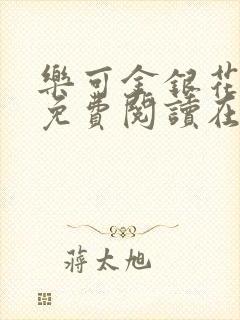 樂可金銀花
免費閱讀在
蔣太旭